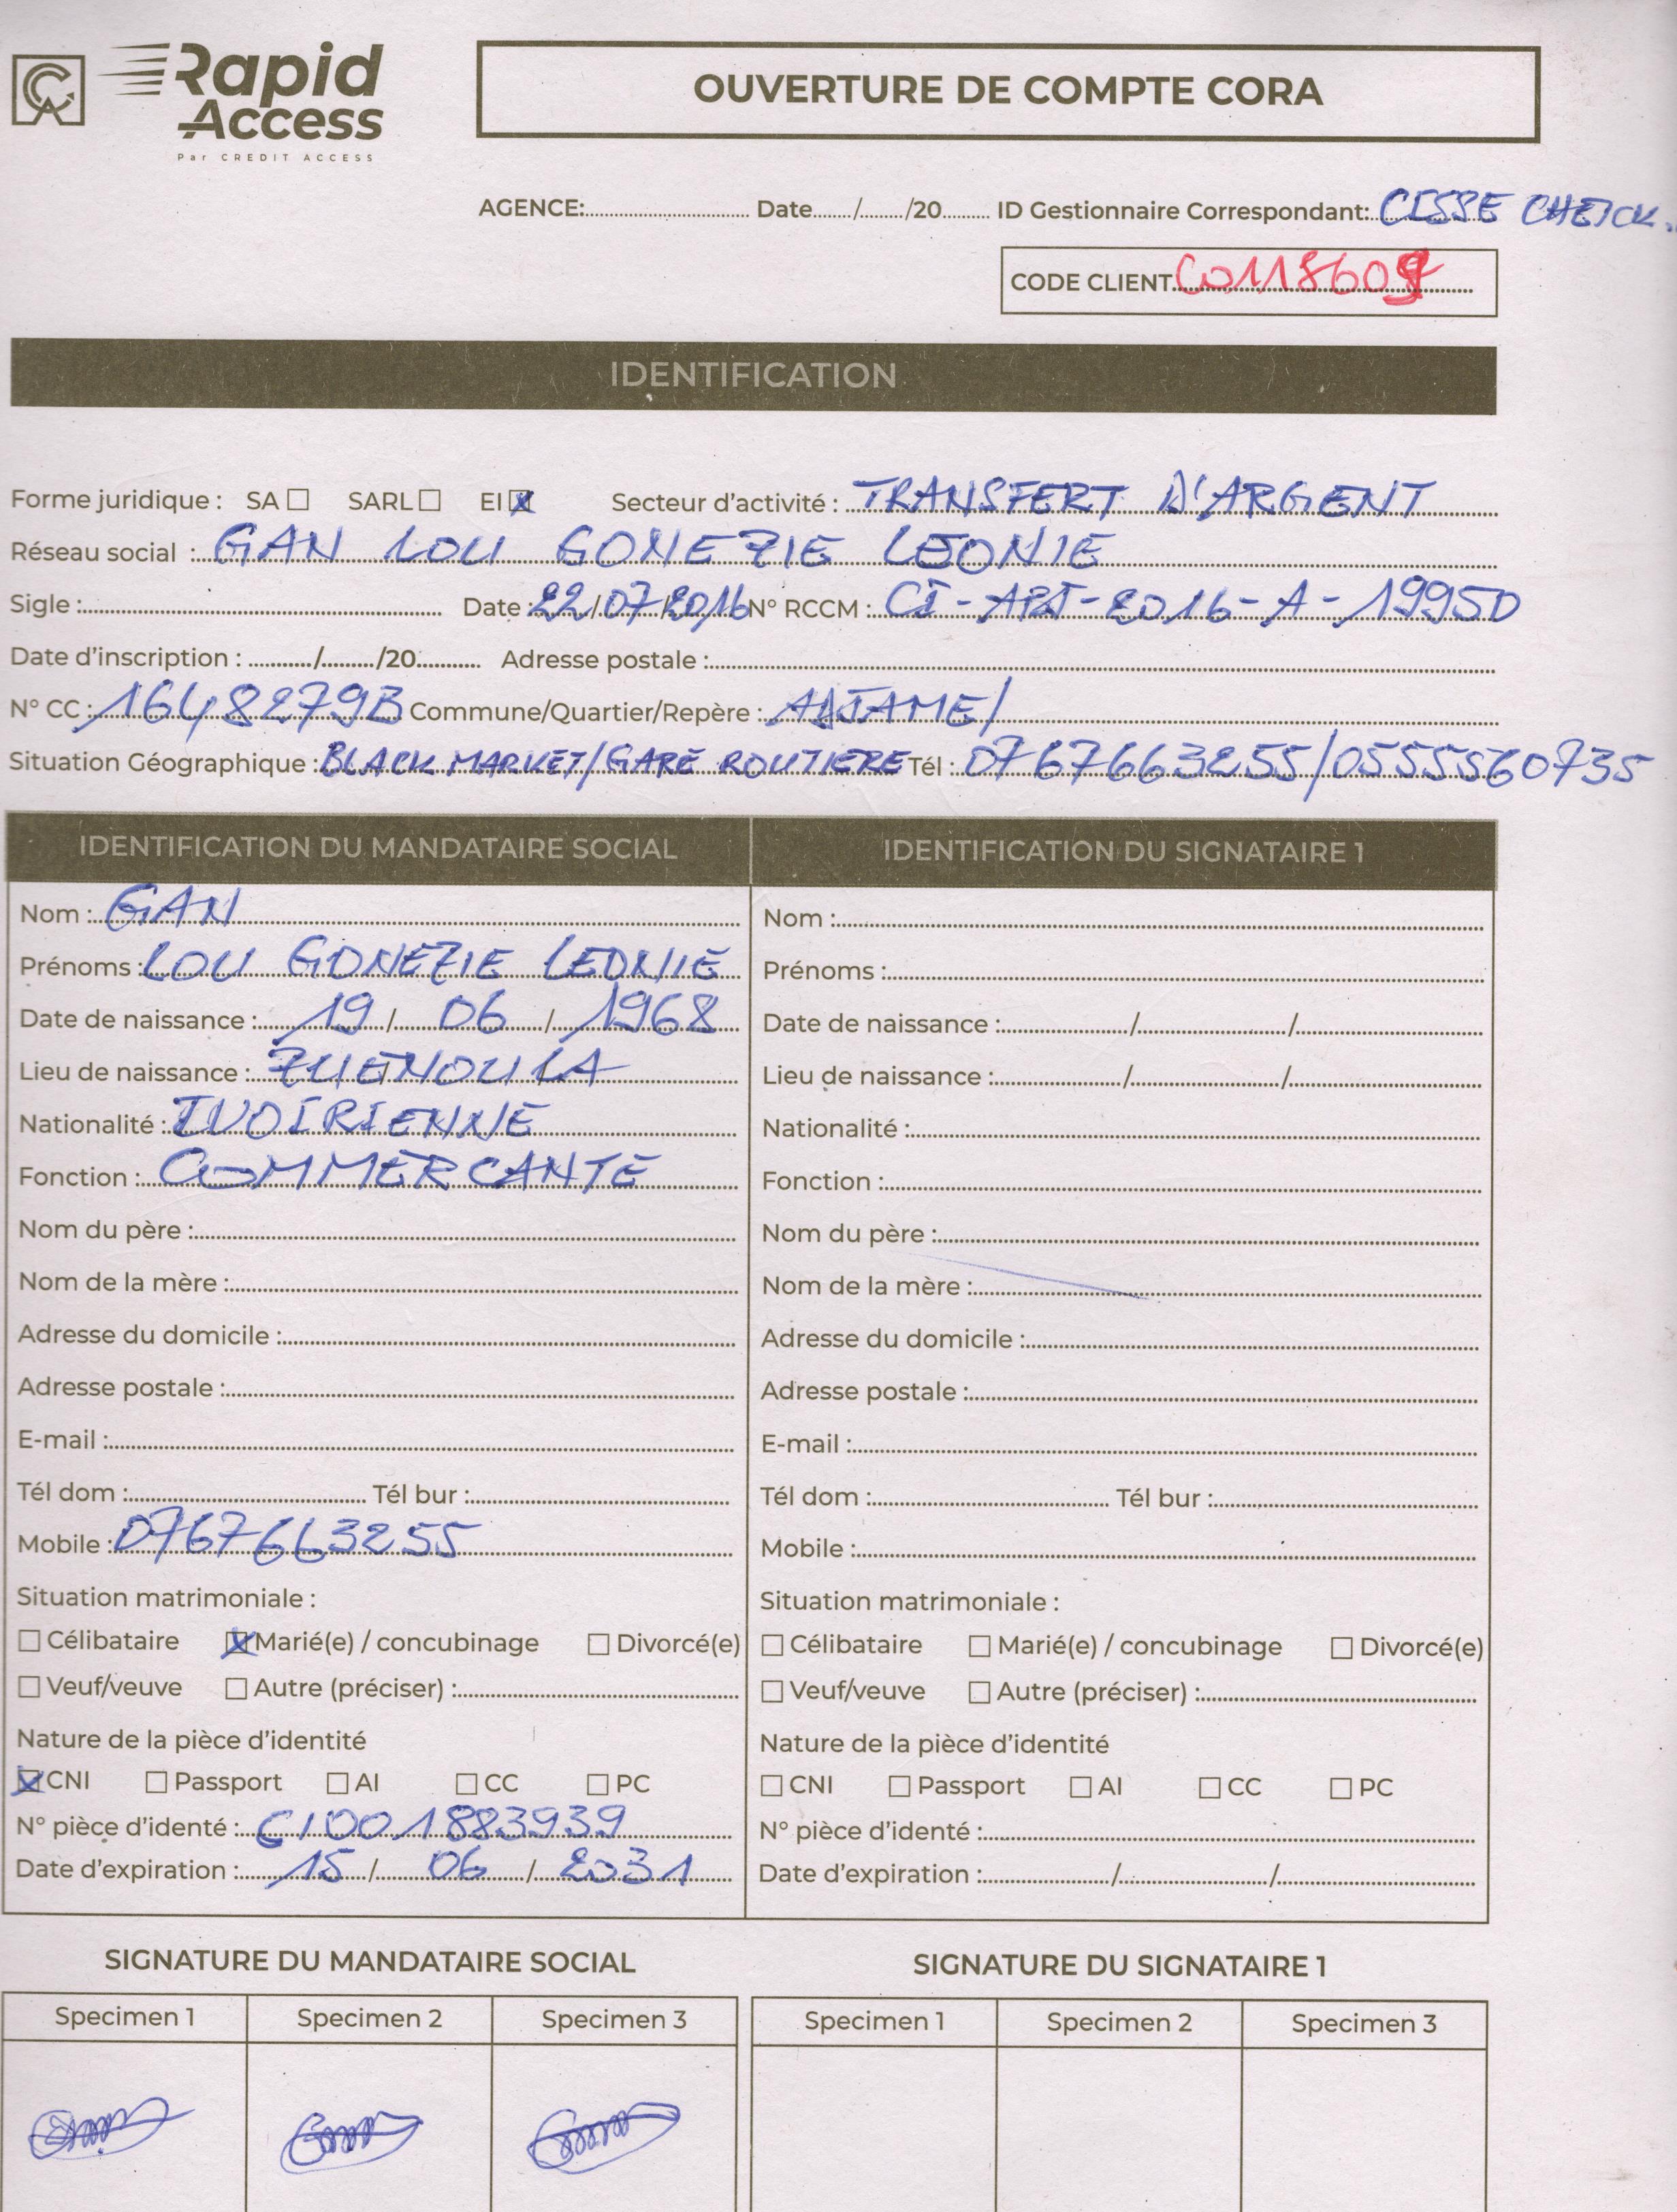 Rapid
Access
Par CREDIT ACCESS
OUVERTURE DE COMPTE CORA
AGENCE:.......... Date....../....../20........ ID Gestionnaire Correspondant: CISSE CHEICK.
CODE CLIENT C011860
IDENTIFICATION
Forme juridique : SA ☐ SARL ☐ EI ☒ Secteur d'activité : TRANSFERT D'ARGENT
Réseau social : GAN LOU GONEZIE LEONIE
Sigle :.......... Date : 22/07/2016 N° RCCM : CI-ABJ-2016-A-19950
Date d'inscription : ........../........../20.......... Adresse postale :..........
N° CC : 1648279B Commune/Quartier/Repère : ADJAME/
Situation Géographique : BLACK MARKET/GARE ROUTIERE Tél : 0767663255/0555560735
IDENTIFICATION DU MANDATAIRE SOCIAL
Nom : GAN
Prénoms : LOU GONEZIE LEONIE
Date de naissance : 19 / 06 / 1968
Lieu de naissance : ZUENOULA
Nationalité : IVOIRIENNE
Fonction : COMMERCANTE
Nom du père :..........
Nom de la mère :..........
Adresse du domicile :..........
Adresse postale :..........
E-mail :..........
Tél dom :.......... Tél bur :..........
Mobile : 0767663255
Situation matrimoniale :
☐ Célibataire ☒ Marié(e) / concubinage ☐ Divorcé(e)
☐ Veuf/veuve ☐ Autre (préciser) :..........
Nature de la pièce d'identité
☒ CNI ☐ Passport ☐ AI ☐ CC ☐ PC
N° pièce d'identé : CI001883939
Date d'expiration : 15 / 06 / 2031
IDENTIFICATION DU SIGNATAIRE 1
Nom :..........
Prénoms :..........
Date de naissance :........../........../..........
Lieu de naissance :........../........../..........
Nationalité :..........
Fonction :..........
Nom du père :..........
Nom de la mère :..........
Adresse du domicile :..........
Adresse postale :..........
E-mail :..........
Tél dom :.......... Tél bur :..........
Mobile :..........
Situation matrimoniale :
☐ Célibataire ☐ Marié(e) / concubinage ☐ Divorcé(e)
☐ Veuf/veuve ☐ Autre (préciser) :..........
Nature de la pièce d'identité
☐ CNI ☐ Passport ☐ AI ☐ CC ☐ PC
N° pièce d'identé :..........
Date d'expiration :........../........../..........
SIGNATURE DU MANDATAIRE SOCIAL
Specimen 1 Specimen 2 Specimen 3
SIGNATURE DU SIGNATAIRE 1
Specimen 1 Specimen 2 Specimen 3